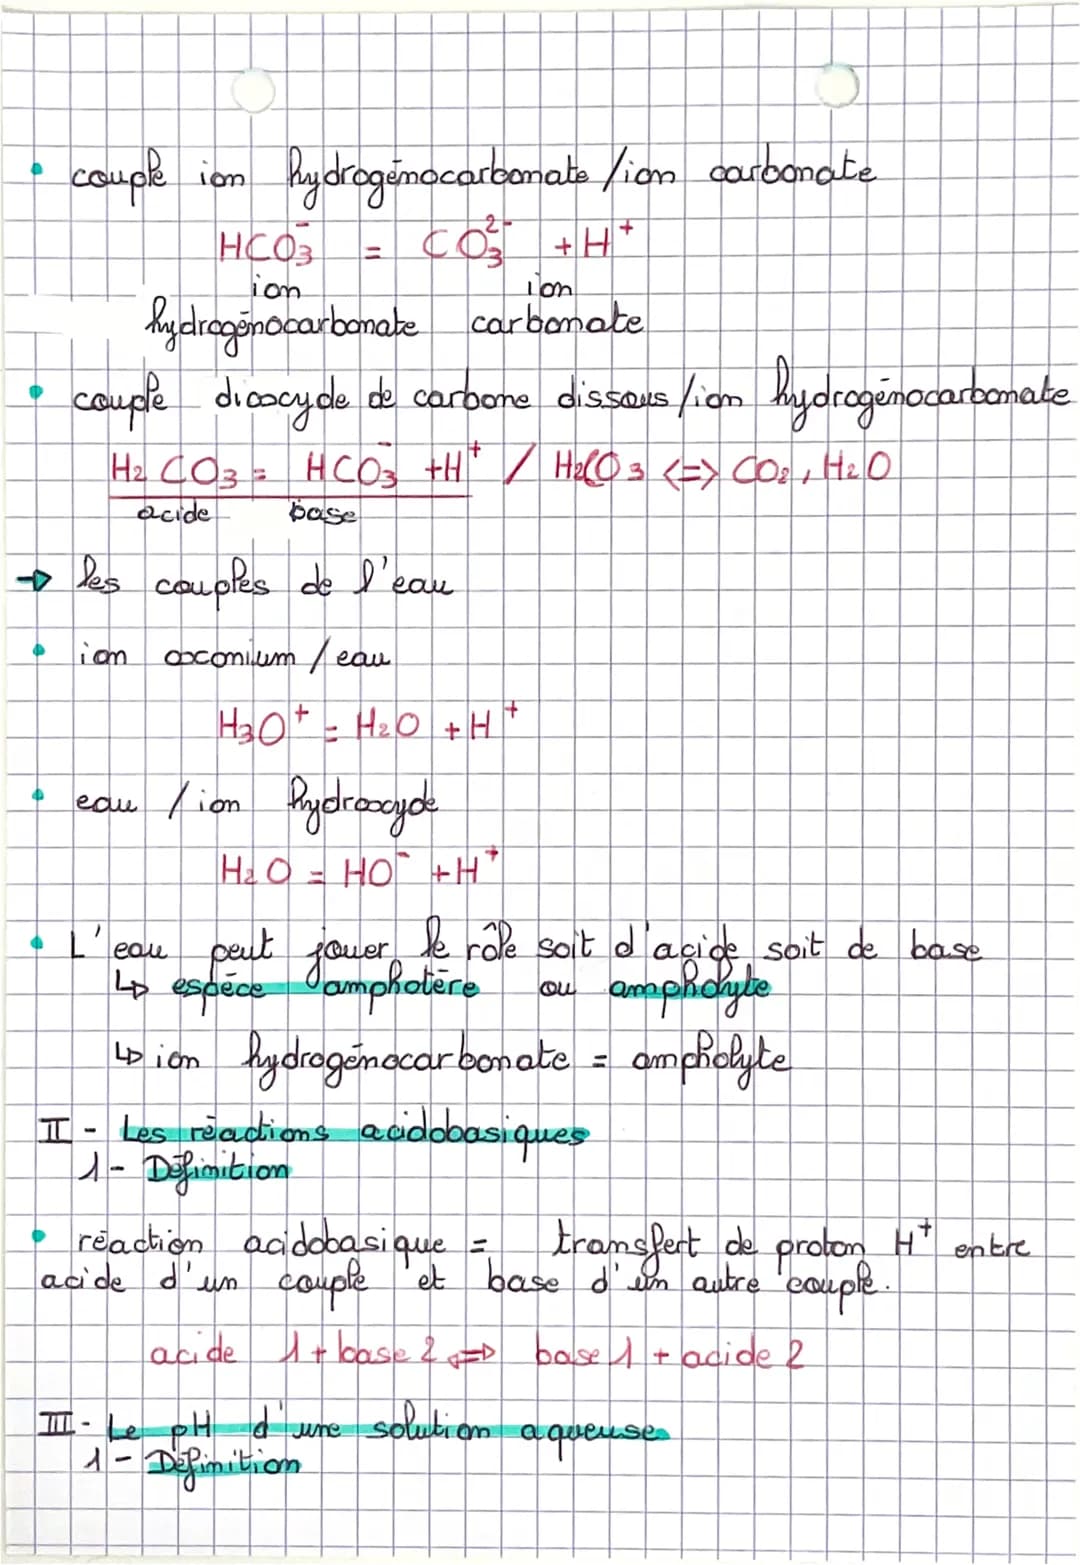 • couple ion hydrogénocarbonate / ion carbonate
HCO₃⁻ = CO₃²⁻ + H⁺
ion ion
hydrogénocarbonate carbonate
• couple dioxyde de carbone dissous / ion hydrogénocarbonate
H₂CO₃ = HCO₃⁻ + H⁺ / H₂CO₃ <=> CO₂, H₂O
acide base
→ les couples de l'eau
• ion oxonium / eau
H₃O⁺ = H₂O + H⁺
• eau / ion hydroxyde
H₂O = HO⁻ + H⁺
• L'eau peut jouer le rôle soit d'acide soit de base
↳ espèce amphotère ou ampholyte
↳ ion hydrogénocarbonate = ampholyte
II - Les réactions acidobasiques
1 - Définition
• réaction acidobasique = transfert de proton H⁺ entre
acide d'un couple et base d'un autre couple.
acide 1 + base 2 <=> base 1 + acide 2
III - Le pH d'une solution aqueuse
1 - Définition